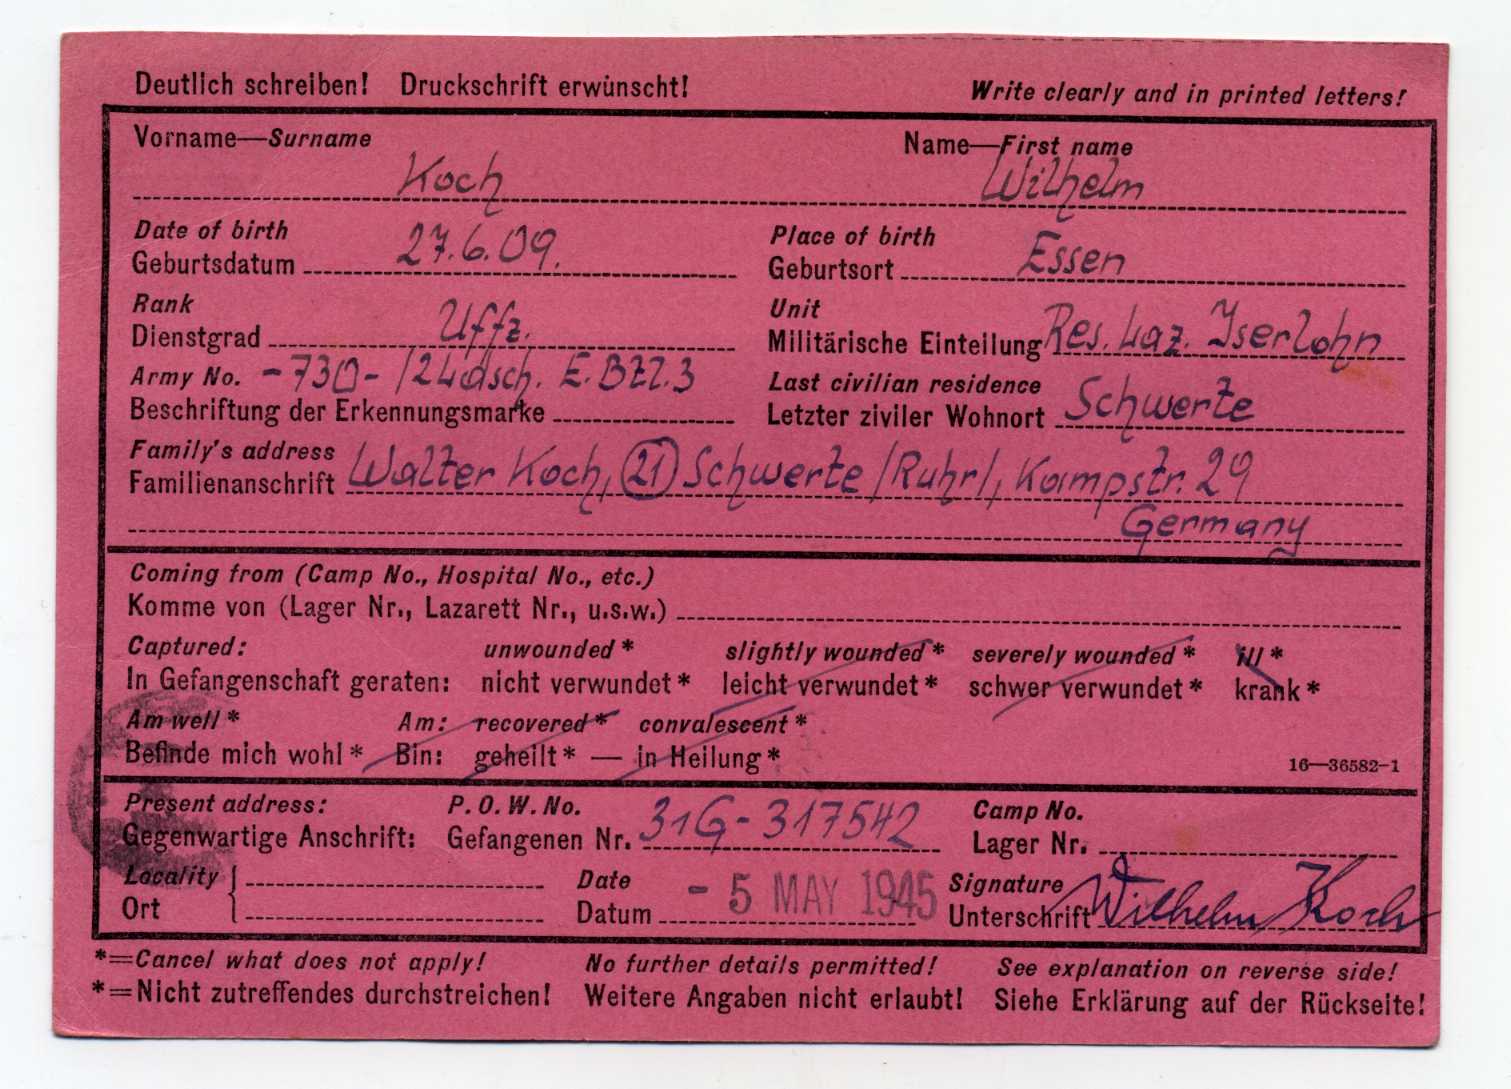 Deutlich schreiben! Druckschrift erwünscht! Write clearly and in printed letters!
Vorname—Surname Name—First name
Koch Wilhelm
Date of birth Place of birth
Geburtsdatum 27.6.09. Geburtsort Essen
Rank Unit
Dienstgrad Uffz. Militärische Einteilung Res. Laz. Iserlohn
Army No. -730- /2Ldsch. E.Btl.3 Last civilian residence
Beschriftung der Erkennungsmarke Letzter ziviler Wohnort Schwerte
Family's address
Familienanschrift Walter Koch, (21) Schwerte /Ruhr/, Kampstr. 29
Germany
Coming from (Camp No., Hospital No., etc.)
Komme von (Lager Nr., Lazarett Nr., u.s.w.)
Captured: unwounded* slightly wounded* severely wounded* ill*
In Gefangenschaft geraten: nicht verwundet* leicht verwundet* schwer verwundet* krank*
Am well* Am: recovered* convalescent*
Befinde mich wohl* Bin: geheilt* — in Heilung*
16—36582-1
Present address: P.O.W. No. Camp No.
Gegenwärtige Anschrift: Gefangenen Nr. 31G-317542 Lager Nr.
Locality Date Signature
Ort Datum - 5 MAY 1945 Unterschrift Wilhelm Koch
*=Cancel what does not apply! No further details permitted! See explanation on reverse side!
*=Nicht zutreffendes durchstreichen! Weitere Angaben nicht erlaubt! Siehe Erklärung auf der Rückseite!